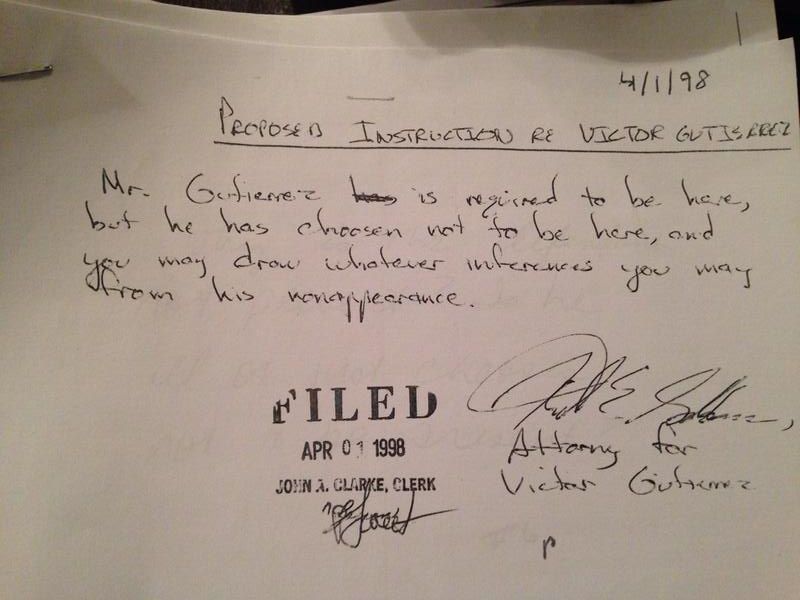 4/1/98
PROPOSED INSTRUCTION RE VICTOR GUTIERREZ
Mr. Gutierrez has is required to be here,
but he has choosen not to be here, and
you may draw whatever inferences you may
from his nonappearance.
FILED
APR 01 1998
JOHN A. CLARKE, CLERK
Attorny for
Victor Gutierrez